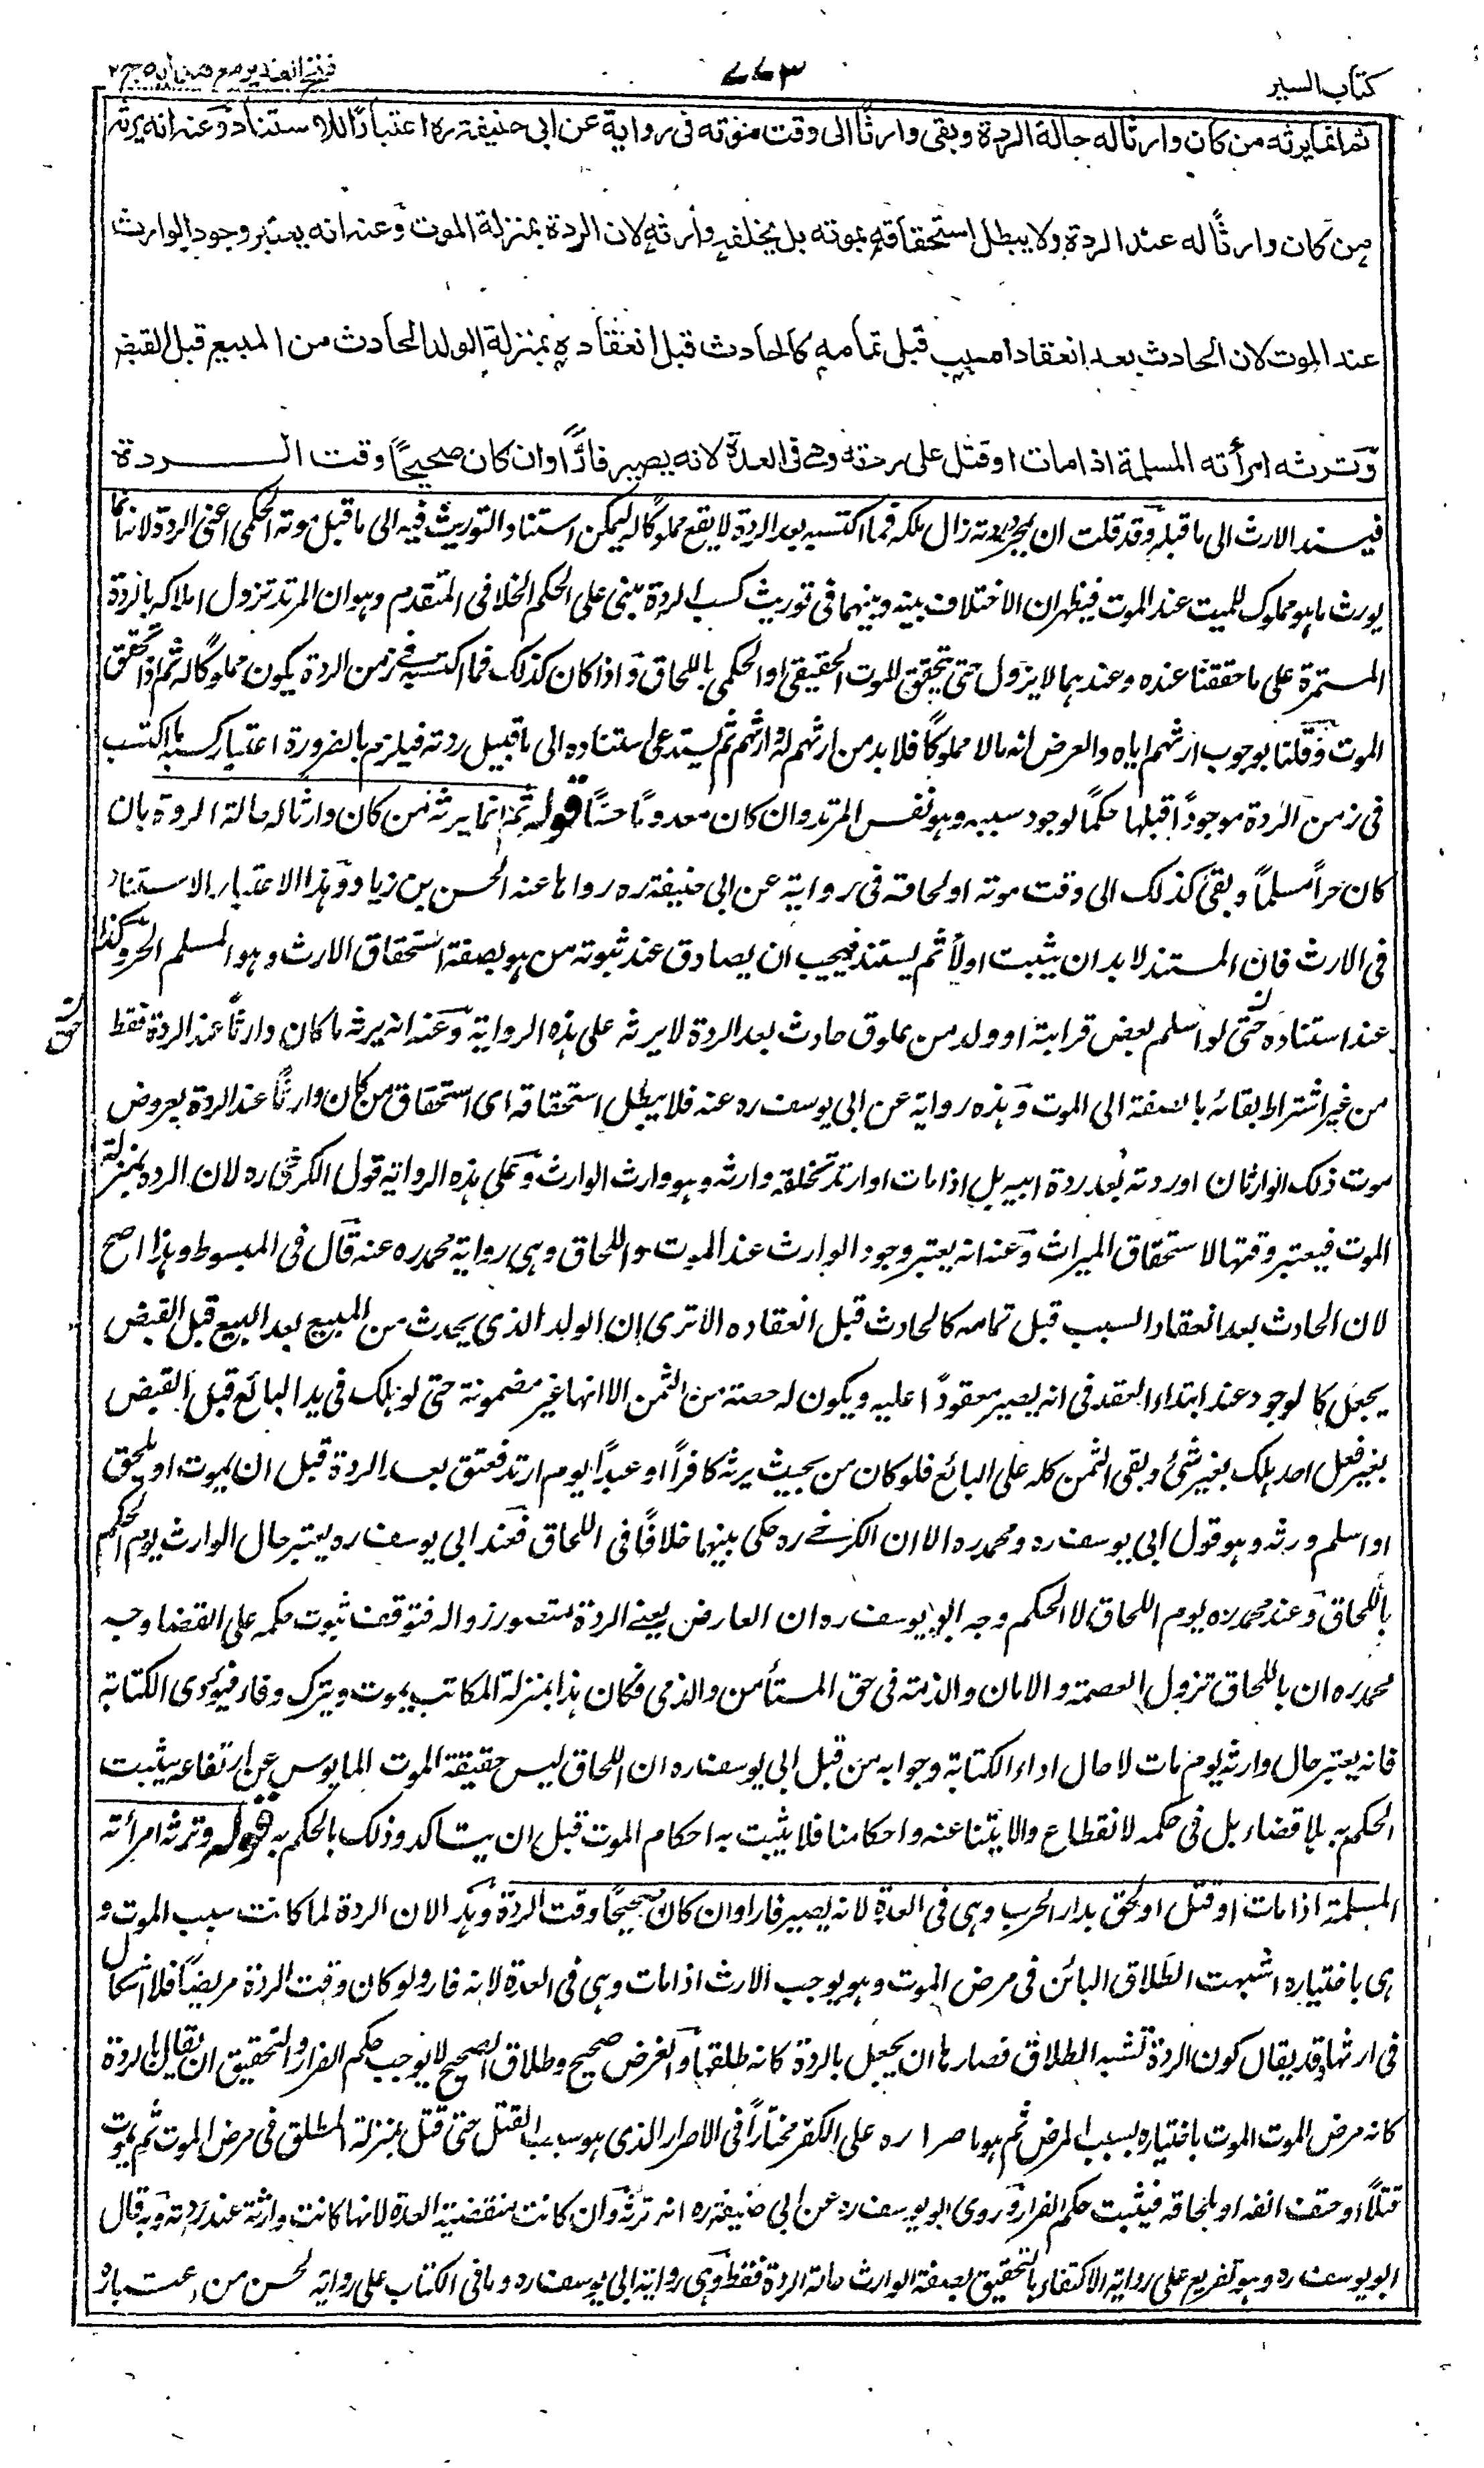 كتاب السير
٧٧٣
فتح القدير مع هداية ج٢
ثم انما يرثه من كان وارثا له حالة الردة وبقى وارثًا الى وقت موته فى رواية عن ابى حنيفة ره اعتبارًا للاستناد وعنه انه يرثه
من كان وارثًا له عند الردة ولا يبطل استحقاقه بموته بل يخلفه وارثه لان الردة بمنزلة الموت وعنه انه يعتبر وجود الوارث
عند الموت لان الحادث بعد انعقاد السبب قبل تمامه كالحادث قبل انعقاده بمنزلة الولد الحادث من المبيع قبل القبض
وترثه امرأته المسلمة اذا مات او قتل على ردته وهى فى العدة لانه يصير فارًّا وان كان صحيحًا وقت الـــــردة
فيسند الارث الى ما قبله وقد قلت ان بمجرد ردته زال ملكه فما اكتسبه بعد الردة لا يقع مملوكًا له ليمكن استناد التوريث فيه الى ما قبل موته الحكمى اعنى الردة لانه انما
يورث ما هو مملوك للميت عند الموت فيظهر ان الاختلاف بينه وبينهما فى توريث كسب الردة مبنى على الحكم الخلافى المتقدم وهو ان المرتد تزول املاكه بالردة
المستمرة على ما حققنا عنده وعندهما لا يزول حتى يتحقق الموت الحقيقى او الحكمى باللحاق واذا كان كذلك فما اكتسبه فى زمن الردة يكون مملوكًا له ثم اذا تحقق
الموت وقلنا بوجوب ارثهم اياه والفرض ان له مالا مملوكًا فلا بد من ارثهم له وارثهم يستدعى استناده الى ما قبيل ردته فيلزم بالضرورة اعتبار كسبه ما اكتسب
فى زمن الردة موجودًا قبلها حكمًا لوجود سببه وهو نفس المرتد وان كان معدومًا حسًّا قوله ثم انما يرثه من كان وارثا له حالة الردة بان
كان حرًا مسلمًا وبقى كذلك الى وقت موته او لحاقه فى رواية عن ابى حنيفة ره رواها عنه الحسن بن زياد وهذا الاعتبار الاستناد
فى الارث فان المستند لا بد ان يثبت اولًا ثم يستند فيجب ان يصادق عند ثبوته من هو بصفة استحقاق الارث وهو المسلم الحر وكذا
عند استناده حتى لو اسلم بعض قرابته او ولد من علوق حادث بعد الردة لا يرثه على هذه الرواية وعنه انه يرثه ما كان وارثًا عند الردة فقط
من غير اشتراط بقائه بالصفة الى الموت وهذه رواية عن ابى يوسف ره عنه فلا يبطل استحقاقه اى استحقاق من كان وارثًا عند الردة بعروض
موت ذلك الوارث او ردته بعد ردة ابيه بل اذا مات او ارتد تخلفه وارثه وهو وارث الوارث وعلى هذه الرواية قول الكرخى ره لان الردة بمنزلة
الموت فيعتبر وقتها لاستحقاق الميراث وعنه انه يعتبر وجود الوارث عند الموت واللحاق وهى رواية محمد ره عنه قال فى المبسوط وهذا اصح
لان الحادث بعد انعقاد السبب قبل تمامه كالحادث قبل انعقاده الا ترى ان الولد الذى يحدث من المبيع بعد البيع قبل القبض
يجعل كالموجود عند ابتداء العقد فى انه يصير معقودًا عليه ويكون له حصته من الثمن الا انها غير مضمونة حتى لو هلك فى يد البائع قبل القبض
بغير فعل احد هلك بغير شئ وبقى الثمن كله على البائع فلو كان من بحيث يرثه كافرًا او عبدًا يوم ارتد فعتق بعد الردة قبل ان يموت او يلحق
او اسلم ورثه وهو قول ابى يوسف ره ومحمد ره الا ان الكرخى ره حكى بينهما خلافًا فى اللحاق فعند ابى يوسف ره يعتبر حال الوارث يوم الحكم
باللحاق وعند محمد ره يوم اللحاق لا الحكم وجه ابى يوسف ره ان العارض يعنى الردة متصور زواله فتوقف ثبوت حكمه على القضا وجه
محمد ره ان باللحاق تزول العصمة والامان والذمة فى حق المستأمن والذمى فكان هذا بمنزلة المكاتب يموت ويترك وفاء فيؤدى الكتابة
فانه يعتبر حال وارثه يوم مات لا حال اداء الكتابة وجوابه من قبل ابى يوسف ره ان اللحاق ليس حقيقة الموت المايوس عن ارتفاعه يثبت
الحكم به بلا قضاء بل فى حكمه لانقطاع ولايتنا عنه واحكامنا فلا يثبت به احكام الموت قبل ان يتاكد وذلك بالحكم به قوله وترثه امرأته
المسلمة اذا مات او قتل او لحق بدار الحرب وهى فى العدة لانه يصير فارا وان كان صحيحًا وقت الردة وهذا لان الردة لما كانت سبب الموت و
هى باختياره اشبهت الطلاق البائن فى مرض الموت وهو يوجب الارث اذا مات وهى فى العدة لانه فار ولو كان وقت الردة مريضًا فلا اشكال
فى ارثها وقد يقال كون الردة تشبه الطلاق قصاراها ان يجعل بالردة كانه طلقها والفرض صحيح وطلاق الصحيح لا يوجب حكم الفرار والتحقيق ان يقال بالردة
كانه مرض الموت باختياره بسبب المرض ثم هو باصراره على الكفر مختارًا فى الاصرار الذى هو سبب القتل حتى قتل بمنزلة المطلق فى مرض الموت ثم يموت
قتلًا او حتف انفه او بلحاقه فيثبت حكم الفرار وروى ابو يوسف ره عن ابى حنيفة ره انه ترثه وان كانت منقضية العدة لانها كانت وارثة عند ردته وبه قال
ابو يوسف ره وهو تفريع على رواية الاكتفاء بالتحقيق بصفة الوارث حالة الردة فقط وهى رواية ابى يوسف ره وما فى الكتاب على رواية الحسن من اعتباره